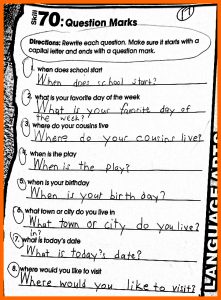 Skill 70: Question Marks
Directions: Rewrite each question. Make sure it starts with a
capital letter and ends with a question mark.
1. when does school start
When does school start?
2. what is your favorite day of the week
What is your favorite day of
the week?
3. where do your cousins live
Where do your cousins live?
4. when is the play
When is the play?
5. when is your birthday
When is your birth day?
6. what town or city do you live in
What town or city do you live
in?
7. what is today's date
What is today's date?
8. where would you like to visit
Where would you like to visit?